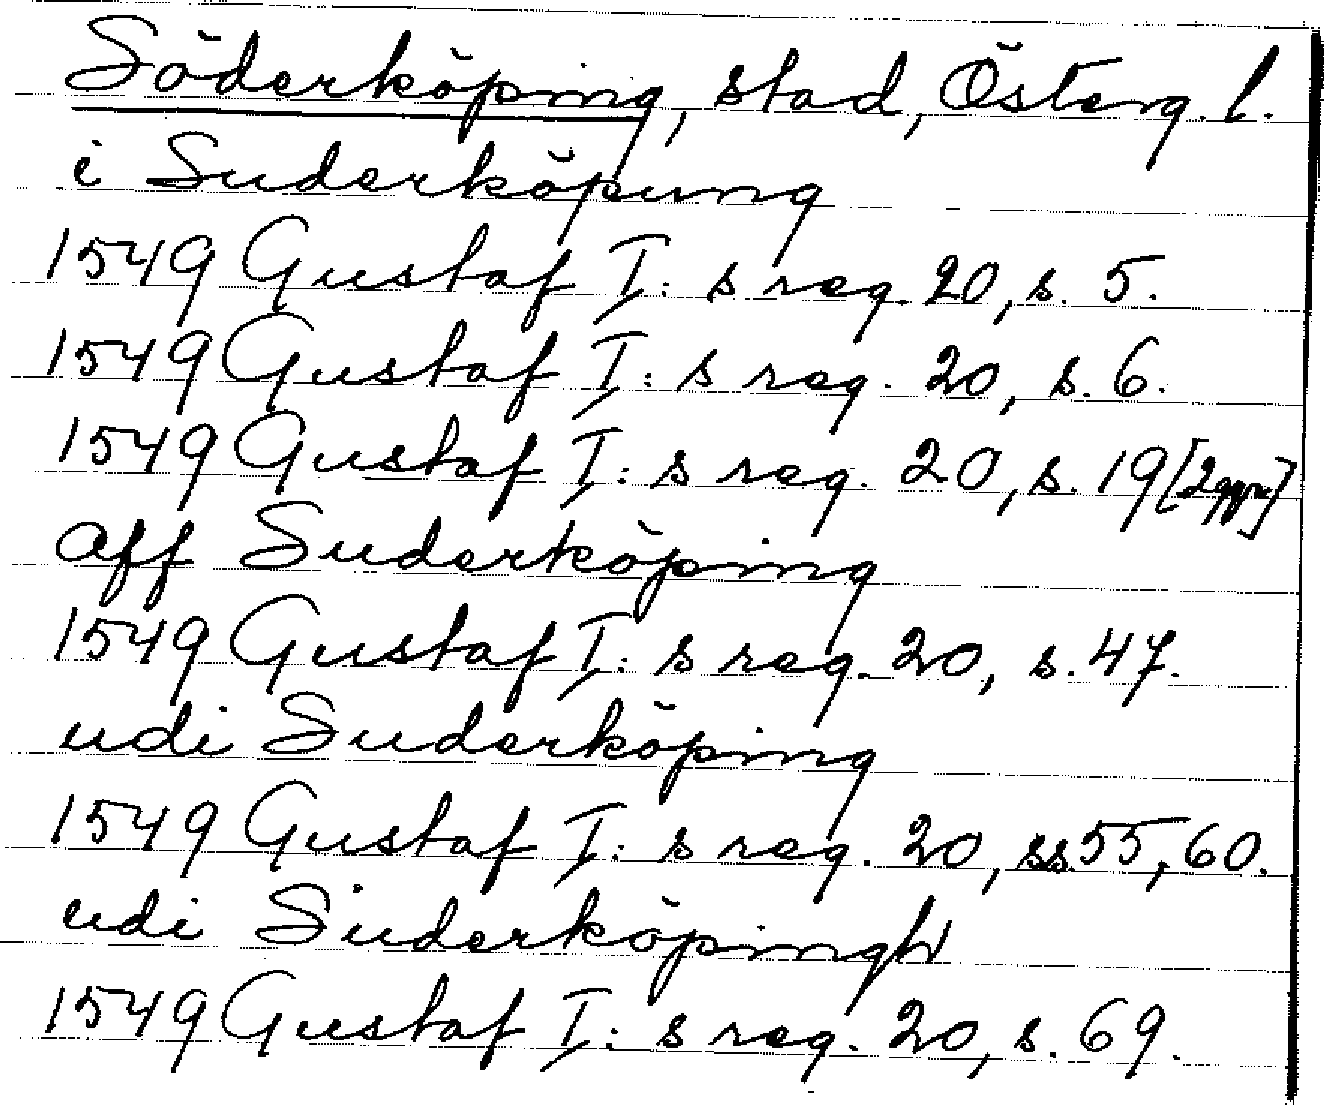 Söderköping, stad, Österg. l.
i Suderköpung
1549 Gustaf I: s reg. 20, s. 5.
1549 Gustaf I: s reg. 20, s. 6.
1549 Gustaf I: s reg. 20, s. 19 [2ggr]
aff Suderköping
1549 Gustaf I: s reg. 20, s. 47.
udi Suderköping
1549 Gustaf I: s reg. 20, ss. 55, 60.
udi Suderköpingh
1549 Gustaf I: s reg. 20, s. 69.